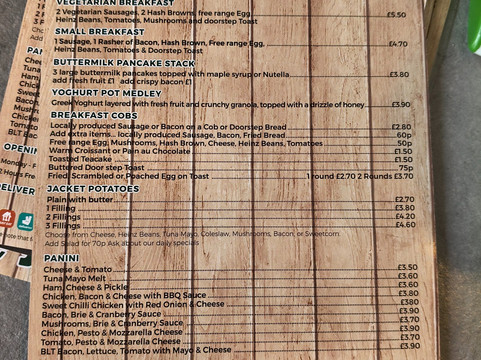 VEGETARIAN BREAKFAST
2 Vegetarian Sausages, 2 Hash Browns, free range Egg, £5.50
Heinz Beans, Tomatoes, Mushrooms and doorstep Toast
SMALL BREAKFAST
1 Sausage, 1 Rasher of Bacon, Hash Brown, Free range Egg, £4.70
Heinz Beans, Tomatoes & Doorstep Toast
BUTTERMILK PANCAKE STACK
3 large buttermilk pancakes topped with maple syrup or Nutella £3.80
add fresh fruit £1 add crispy bacon £1
YOGHURT POT MEDLEY
Greek Yoghurt layered with fresh fruit and crunchy granola, topped with a drizzle of honey £3.90
BREAKFAST COBS
Locally produced Sausage or Bacon on a Cob or Doorstep Bread £2.80
Add extra items... locally produced Sausage, Bacon, Fried Bread 60p
Free range Egg, Mushrooms, Hash Brown, Cheese, Heinz Beans, Tomatoes 50p
Warm Croissant or Pain au Chocolate £1.50
Toasted Teacake £1.50
Buttered Door step Toast 75p
Fried, Scrambled or Poached Egg on Toast 1 round £2.70 2 Rounds £3.70
JACKET POTATOES
Plain with butter £2.70
1 Filling £3.80
2 Fillings £4.20
3 Fillings £4.60
Choose from Cheese, Heinz Beans, Tuna Mayo, Coleslaw, Mushrooms, Bacon, or Sweetcorn
Add Salad for 70p Ask about our daily specials
PANINI
Cheese & Tomato £3.50
Tuna Mayo Melt £3.60
Ham, Cheese & Pickle £3.60
Chicken, Bacon & Cheese with BBQ Sauce £3.80
Sweet Chilli Chicken with Red Onion & Cheese £380
Bacon, Brie & Cranberry Sauce £3.90
Mushrooms, Brie & Cranberry Sauce £3.70
Chicken, Pesto & Mozzarella Cheese £3.90
Tomato, Pesto & Mozzarella Cheese £3.70
BLT Bacon, Lettuce, Tomato with Mayo & Cheese £3.90